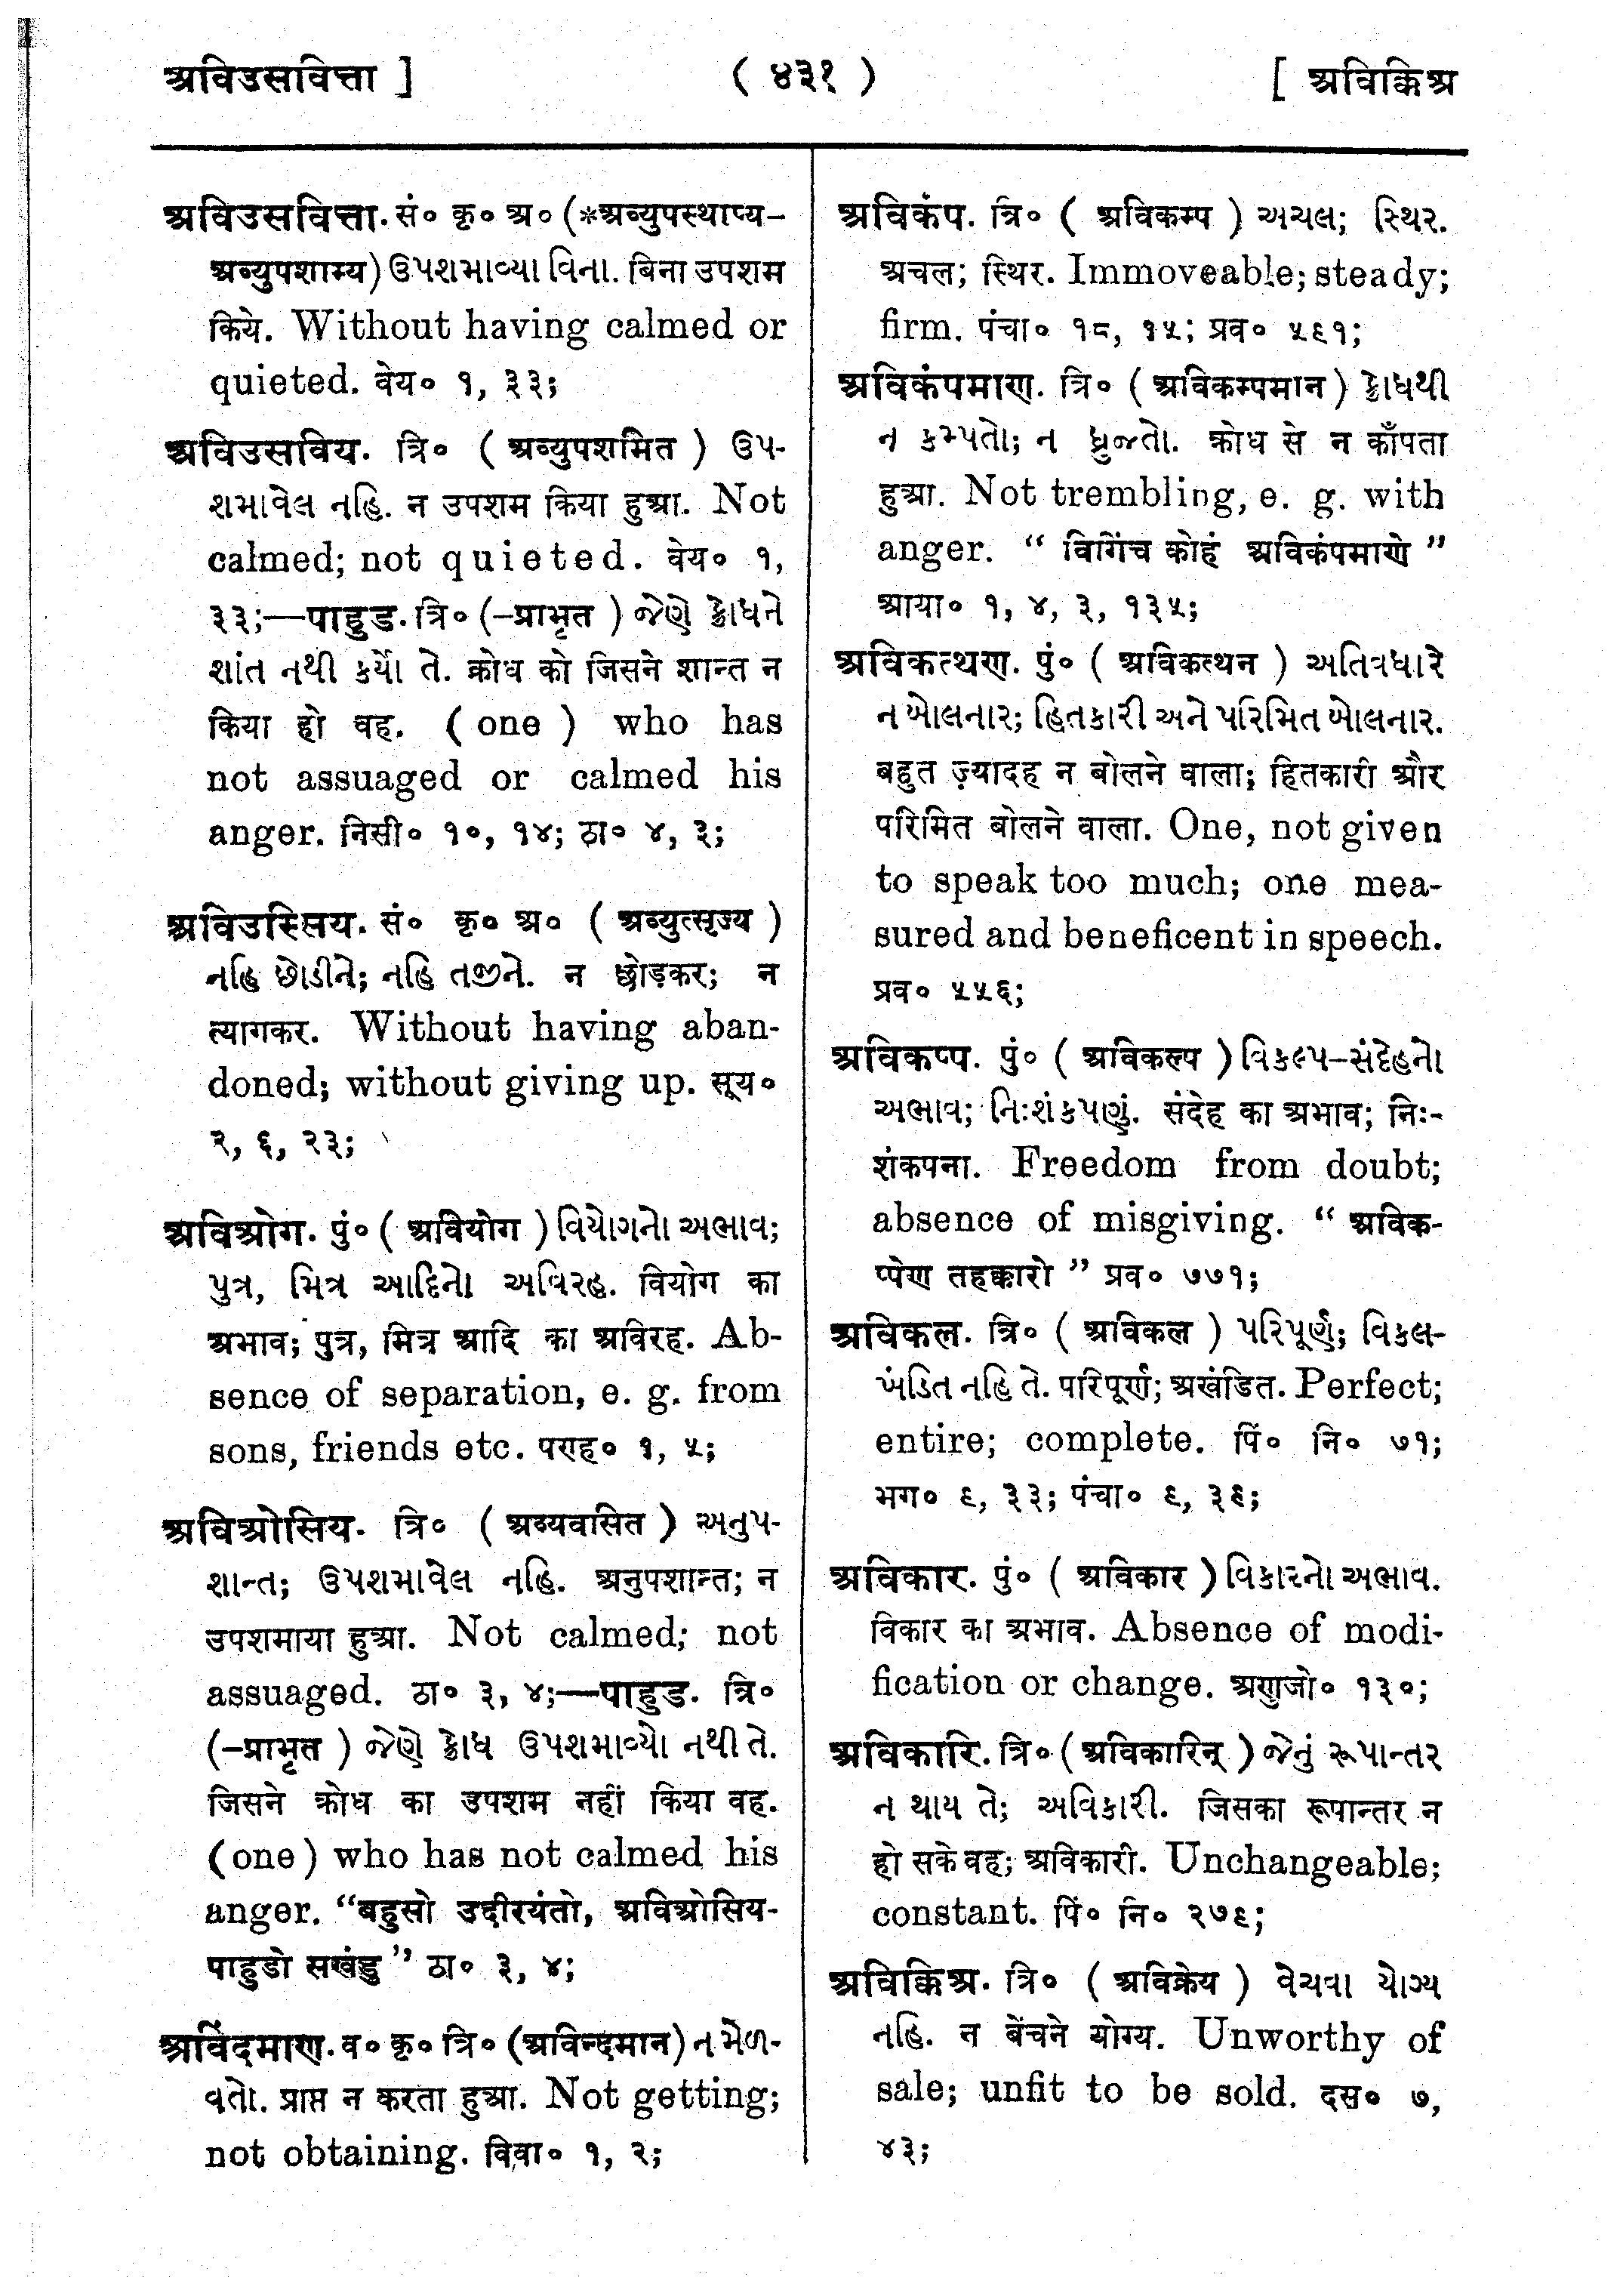 अविउसवित्ता ]
( ४३१ )
[ अविक्किअ
अविउसवित्ता. सं० कृ० अ० (*अव्युपस्थाप्य-
अव्युपशाम्य) ઉપશમાવ્યા વિના. बिना उपशम
किये. Without having calmed or
quieted. वेय० १, ३३;
अविउसविय. त्रि० ( अव्युपशमित ) ઉપ-
શમાવેલ નહિ. न उपशम किया हुआ. Not
calmed; not quieted. वेय० १,
३३;—पाहुड. त्रि० (-प्राभृत ) જેણે ક્રોધને
શાંત નથી કર્યો તે. क्रोध को जिसने शान्त न
किया हो वह. ( one ) who has
not assuaged or calmed his
anger. निसी० १०, १४; ठा० ४, ३;
अविउस्सिय. सं० कृ० अ० ( अव्युत्सृज्य )
નહિ છોડીને; નહિ તજીને. न छोड़कर; न
त्यागकर. Without having aban-
doned; without giving up. सूय०
२, ६, २३;
अविओग. पुं० ( अवियोग ) વિયોગનો અભાવ;
પુત્ર, મિત્ર આદિનો અવિરહ. वियोग का
अभाव; पुत्र, मित्र आदि का अविरह. Ab-
sence of separation, e. g. from
sons, friends etc. पण्ह० १, ५;
अविओसिय. त्रि० ( अव्यवसित ) અનુપ-
શાન્ત; ઉપશમાવેલ નહિ. अनुपशान्त; न
उपशमाया हुआ. Not calmed; not
assuaged. ठा० ३, ४;—पाहुड. त्रि०
(-प्राभृत ) જેણે ક્રોધ ઉપશમાવ્યો નથી તે.
जिसने क्रोध का उपशम नहीं किया वह.
(one) who has not calmed his
anger. “बहुसो उद्दीरयंतो, अविओसिय-
पाहुडो सखंडु ” ठा० ३, ४;
अविंदमाण. व० कृ० त्रि० (अविन्दमान) ન મેળ-
વતો. प्राप्त न करता हुआ. Not getting;
not obtaining. विवा० १, २;
अविकंप. त्रि० ( अविकम्प ) અચલ; સ્થિર.
अचल; स्थिर. Immoveable; steady;
firm. पंचा० १८, १५; प्रव० ५९१;
अविकंपमाण. त्रि० ( अविकम्पमान ) ક્રોધથી
ન કમ્પતો; ન ધ્રુજતો. क्रोध से न काँपता
हुआ. Not trembling, e. g. with
anger. “ विगिंच कोहं अविकंपमाणे ”
आया० १, ४, ३, १३५;
अविकत्थण. पुं० ( अविकत्थन ) અતિવધારે
ન બોલનાર; હિતકારી અને પરિમિત બોલનાર.
बहुत ज़्यादह न बोलने वाला; हितकारी और
परिमित बोलने वाला. One, not given
to speak too much; one mea-
sured and beneficent in speech.
प्रव० ५५६;
अविकप्प. पुं० ( अविकल्प ) વિકલ્પ-સંદેહનો
અભાવ; નિઃશંકપણું. संदेह का अभाव; निः-
शंकपना. Freedom from doubt;
absence of misgiving. “ अविक-
प्पेण तहक्कारो ” प्रव० ७७१;
अविकल. त्रि० ( अविकल ) પરિપૂર્ણ; વિકલ-
ખંડિત નહિ તે. परिपूर्ण; अखंडित. Perfect;
entire; complete. पिं० नि० ७१;
भग० ९, ३३; पंचा० ९, ३९;
अविकार. पुं० ( अविकार ) વિકારનો અભાવ.
विकार का अभाव. Absence of modi-
fication or change. अणुजो० १३०;
अविकारि. त्रि० ( अविकारिन् ) જેનું રૂપાન્તર
ન થાય તે; અવિકારી. जिसका रूपान्तर न
हो सके वह; अविकारी. Unchangeable;
constant. पिं० नि० २७९;
अविक्किअ. त्रि० ( अविक्रेय ) વેચવા યોગ્ય
નહિ. न बेंचने योग्य. Unworthy of
sale; unfit to be sold. दस० ७,
४३;